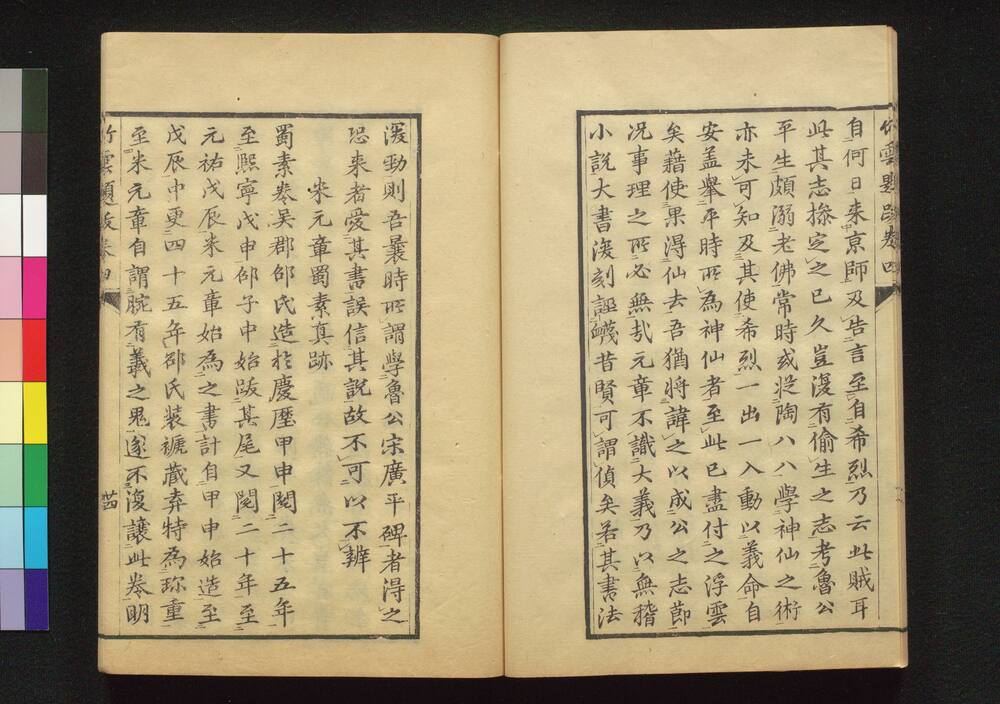 竹雲題跋卷四
自何日来京師及告言至自希烈乃云此賊耳
此其志操定之已久豈復有偷生之志考魯公
平生頗溺老佛常時或從陶八八學神仙之術
亦未可知及其使希烈一出一入動以義命自
安盖舉平時所為神仙者至此已盡付之浮雲
矣藉使果得仙去吾猶將諱之以成公之志節
况事理之所必無㢤元章不識大義乃以無稽
小說大書深刻誣衊昔賢可謂傎矣若其書法
遒勁則吾曩時所謂學魯公宋廣平碑者得之
恐来者愛其書誤信其說故不可以不辨
宋元章蜀素真跡
蜀素卷吳郡邵氏造於慶歷甲申閱二十五年
至熙寧戊申邵子中始跋其尾又閱二十年至
元祐戊辰米元章始為之書計自甲申始造至
戊辰中更四十五年邵氏裝褫藏弆特為珎重
至米元章自謂腕有羲之鬼遂不復讓此卷明
竹雲題跋卷四
廿四